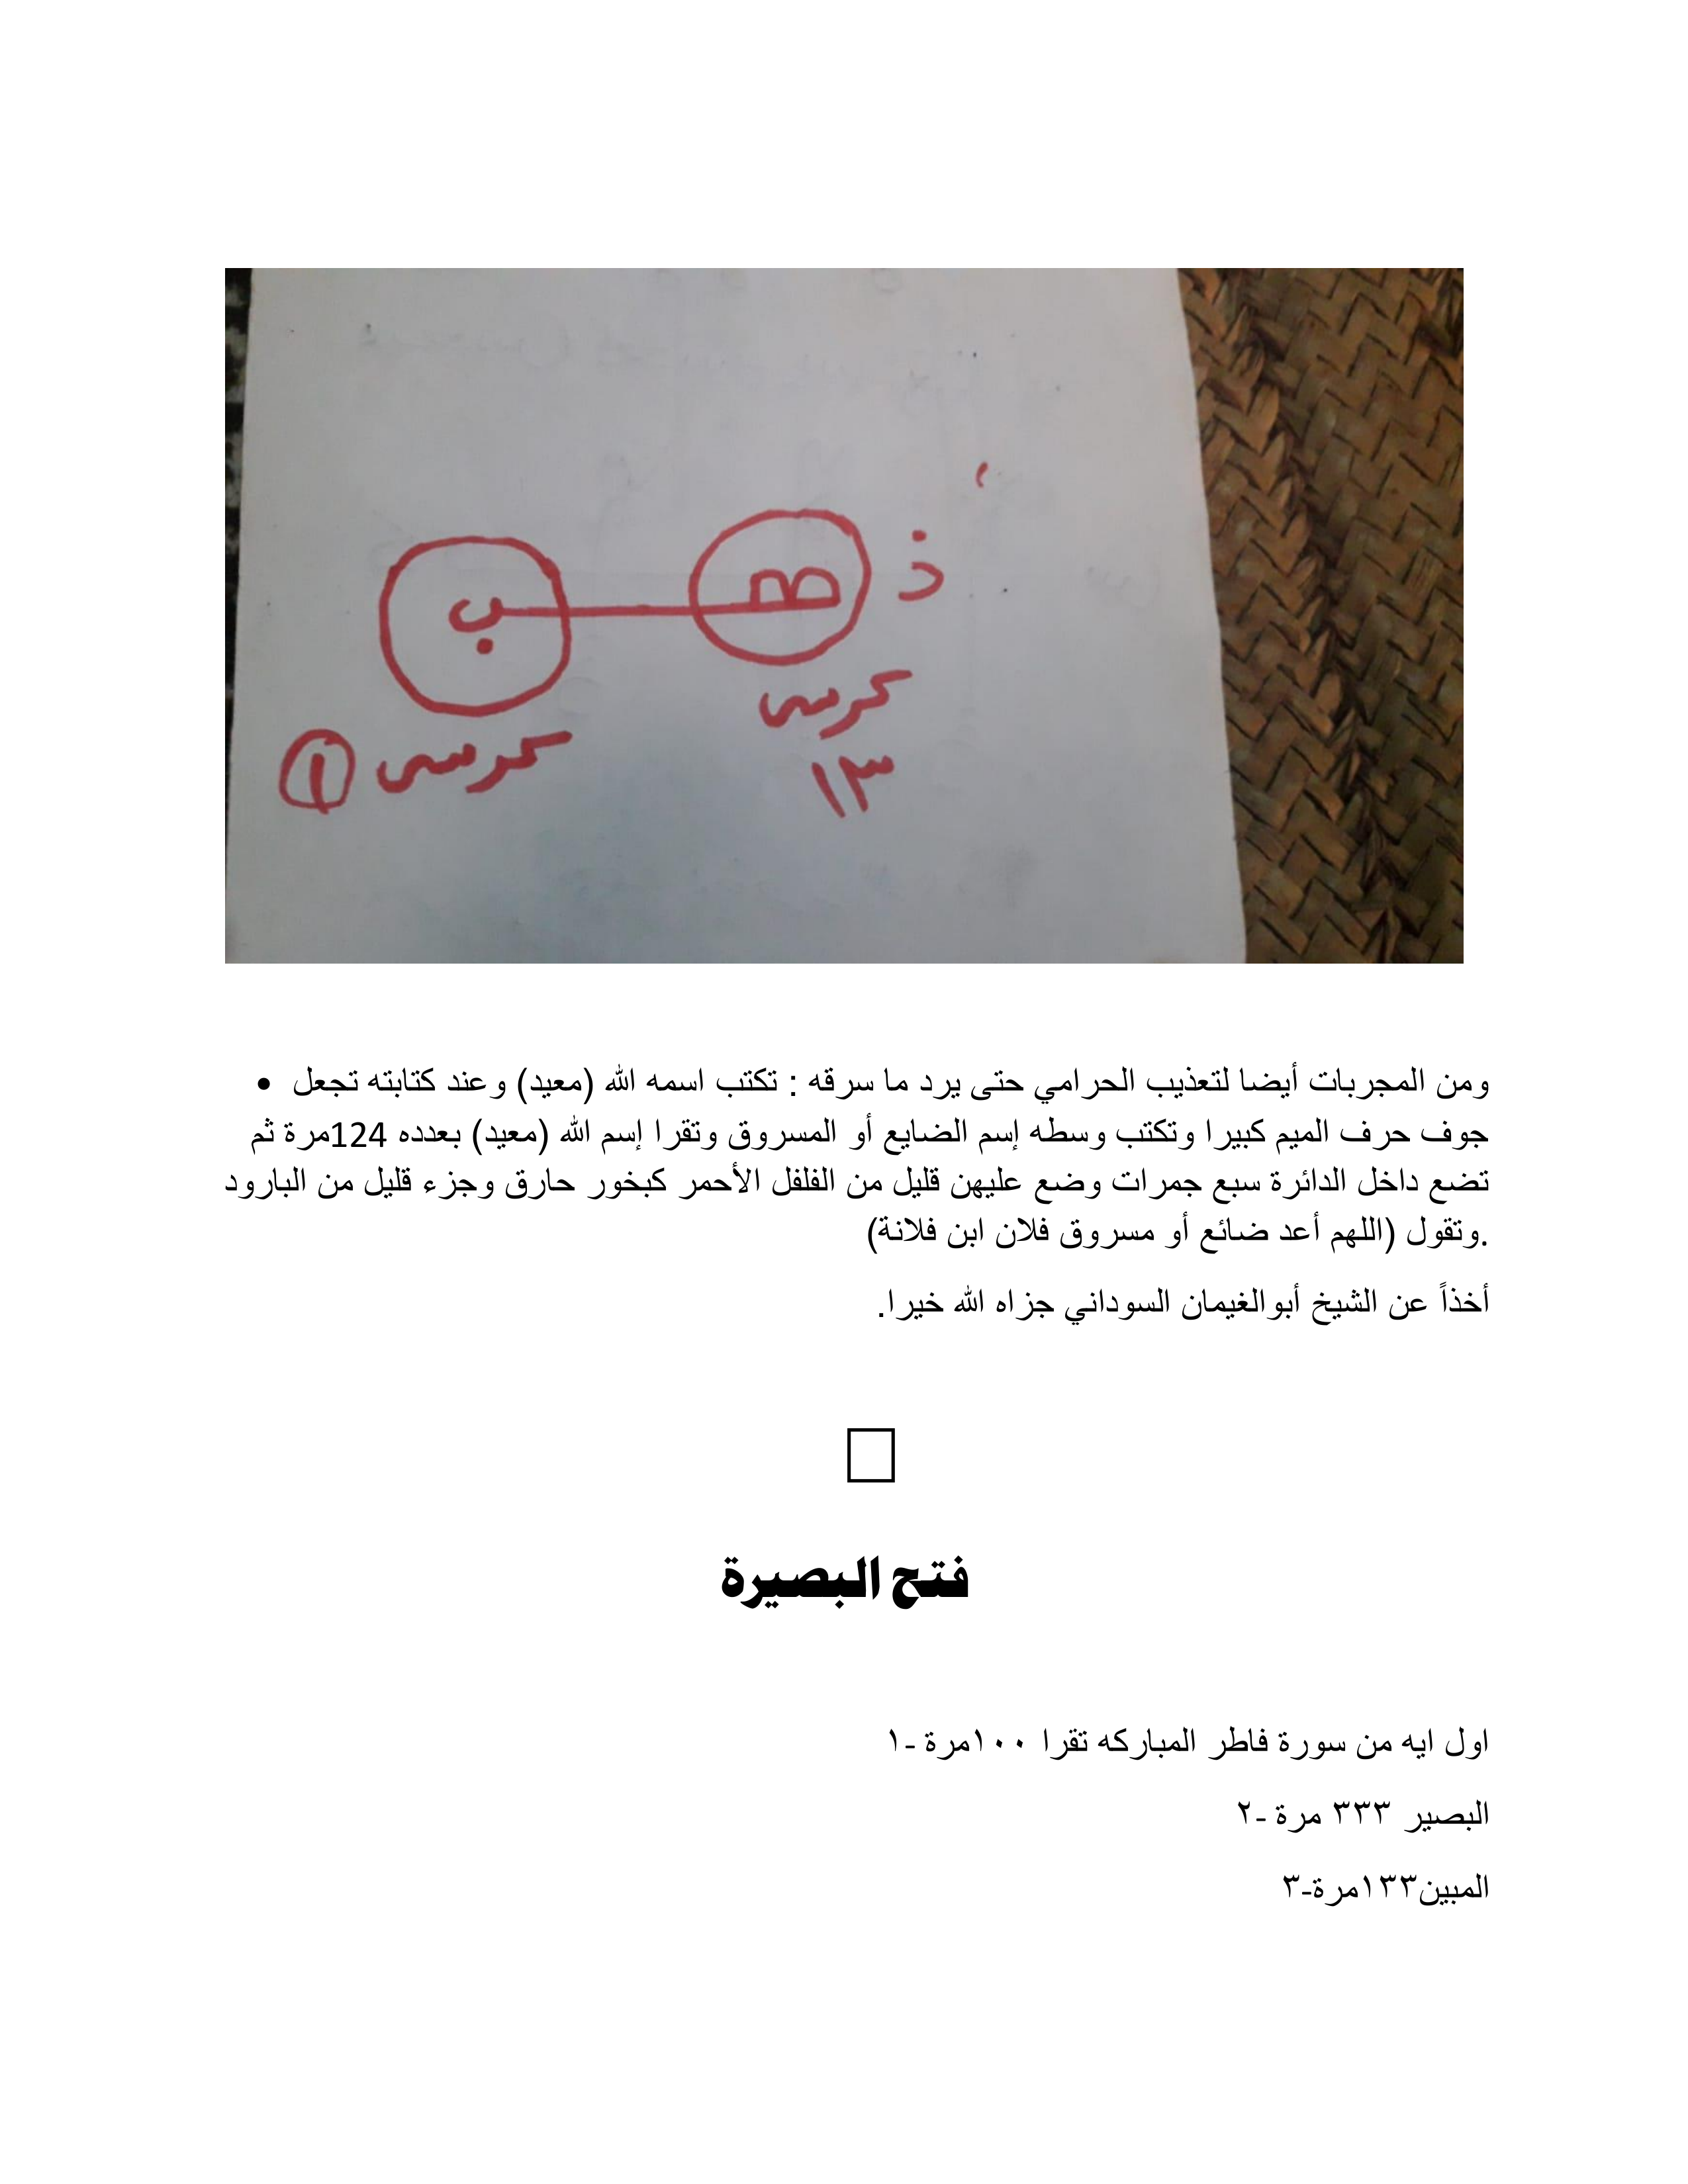 ذ ھ ب
كرسى
١٣
كرسى ١
• ومن المجربات أيضا لتعذيب الحرامي حتى يرد ما سرقه : تكتب اسمه الله (معيد) وعند كتابته تجعل
جوف حرف الميم كبيرا وتكتب وسطه إسم الضايع أو المسروق وتقرا إسم الله (معيد) بعدده 124مرة ثم
تضع داخل الدائرة سبع جمرات وضع عليهن قليل من الفلفل الأحمر كبخور حارق وجزء قليل من البارود
.وتقول (اللهم أعد ضائع أو مسروق فلان ابن فلانة)
أخذاً عن الشيخ أبوالغيمان السوداني جزاه الله خيرا.
فتح البصيرة
اول ايه من سورة فاطر المباركه تقرا ١٠٠مرة -١
البصير ٣٣٣ مرة -٢
المبين١٣٣مرة-٣